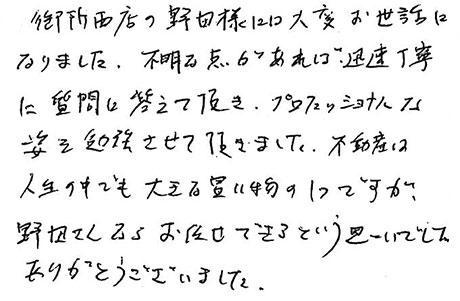 御所西店の野田様には大変お世話に
なりました。不明な点があれば、迅速丁寧
に質問に答えて頂き、プロフェッショナルな
姿を勉強させて頂きました。不動産は
人生の中でも大きな買い物の1つですが、
野田さんならお任せできるという思いでした
ありがとうございました。